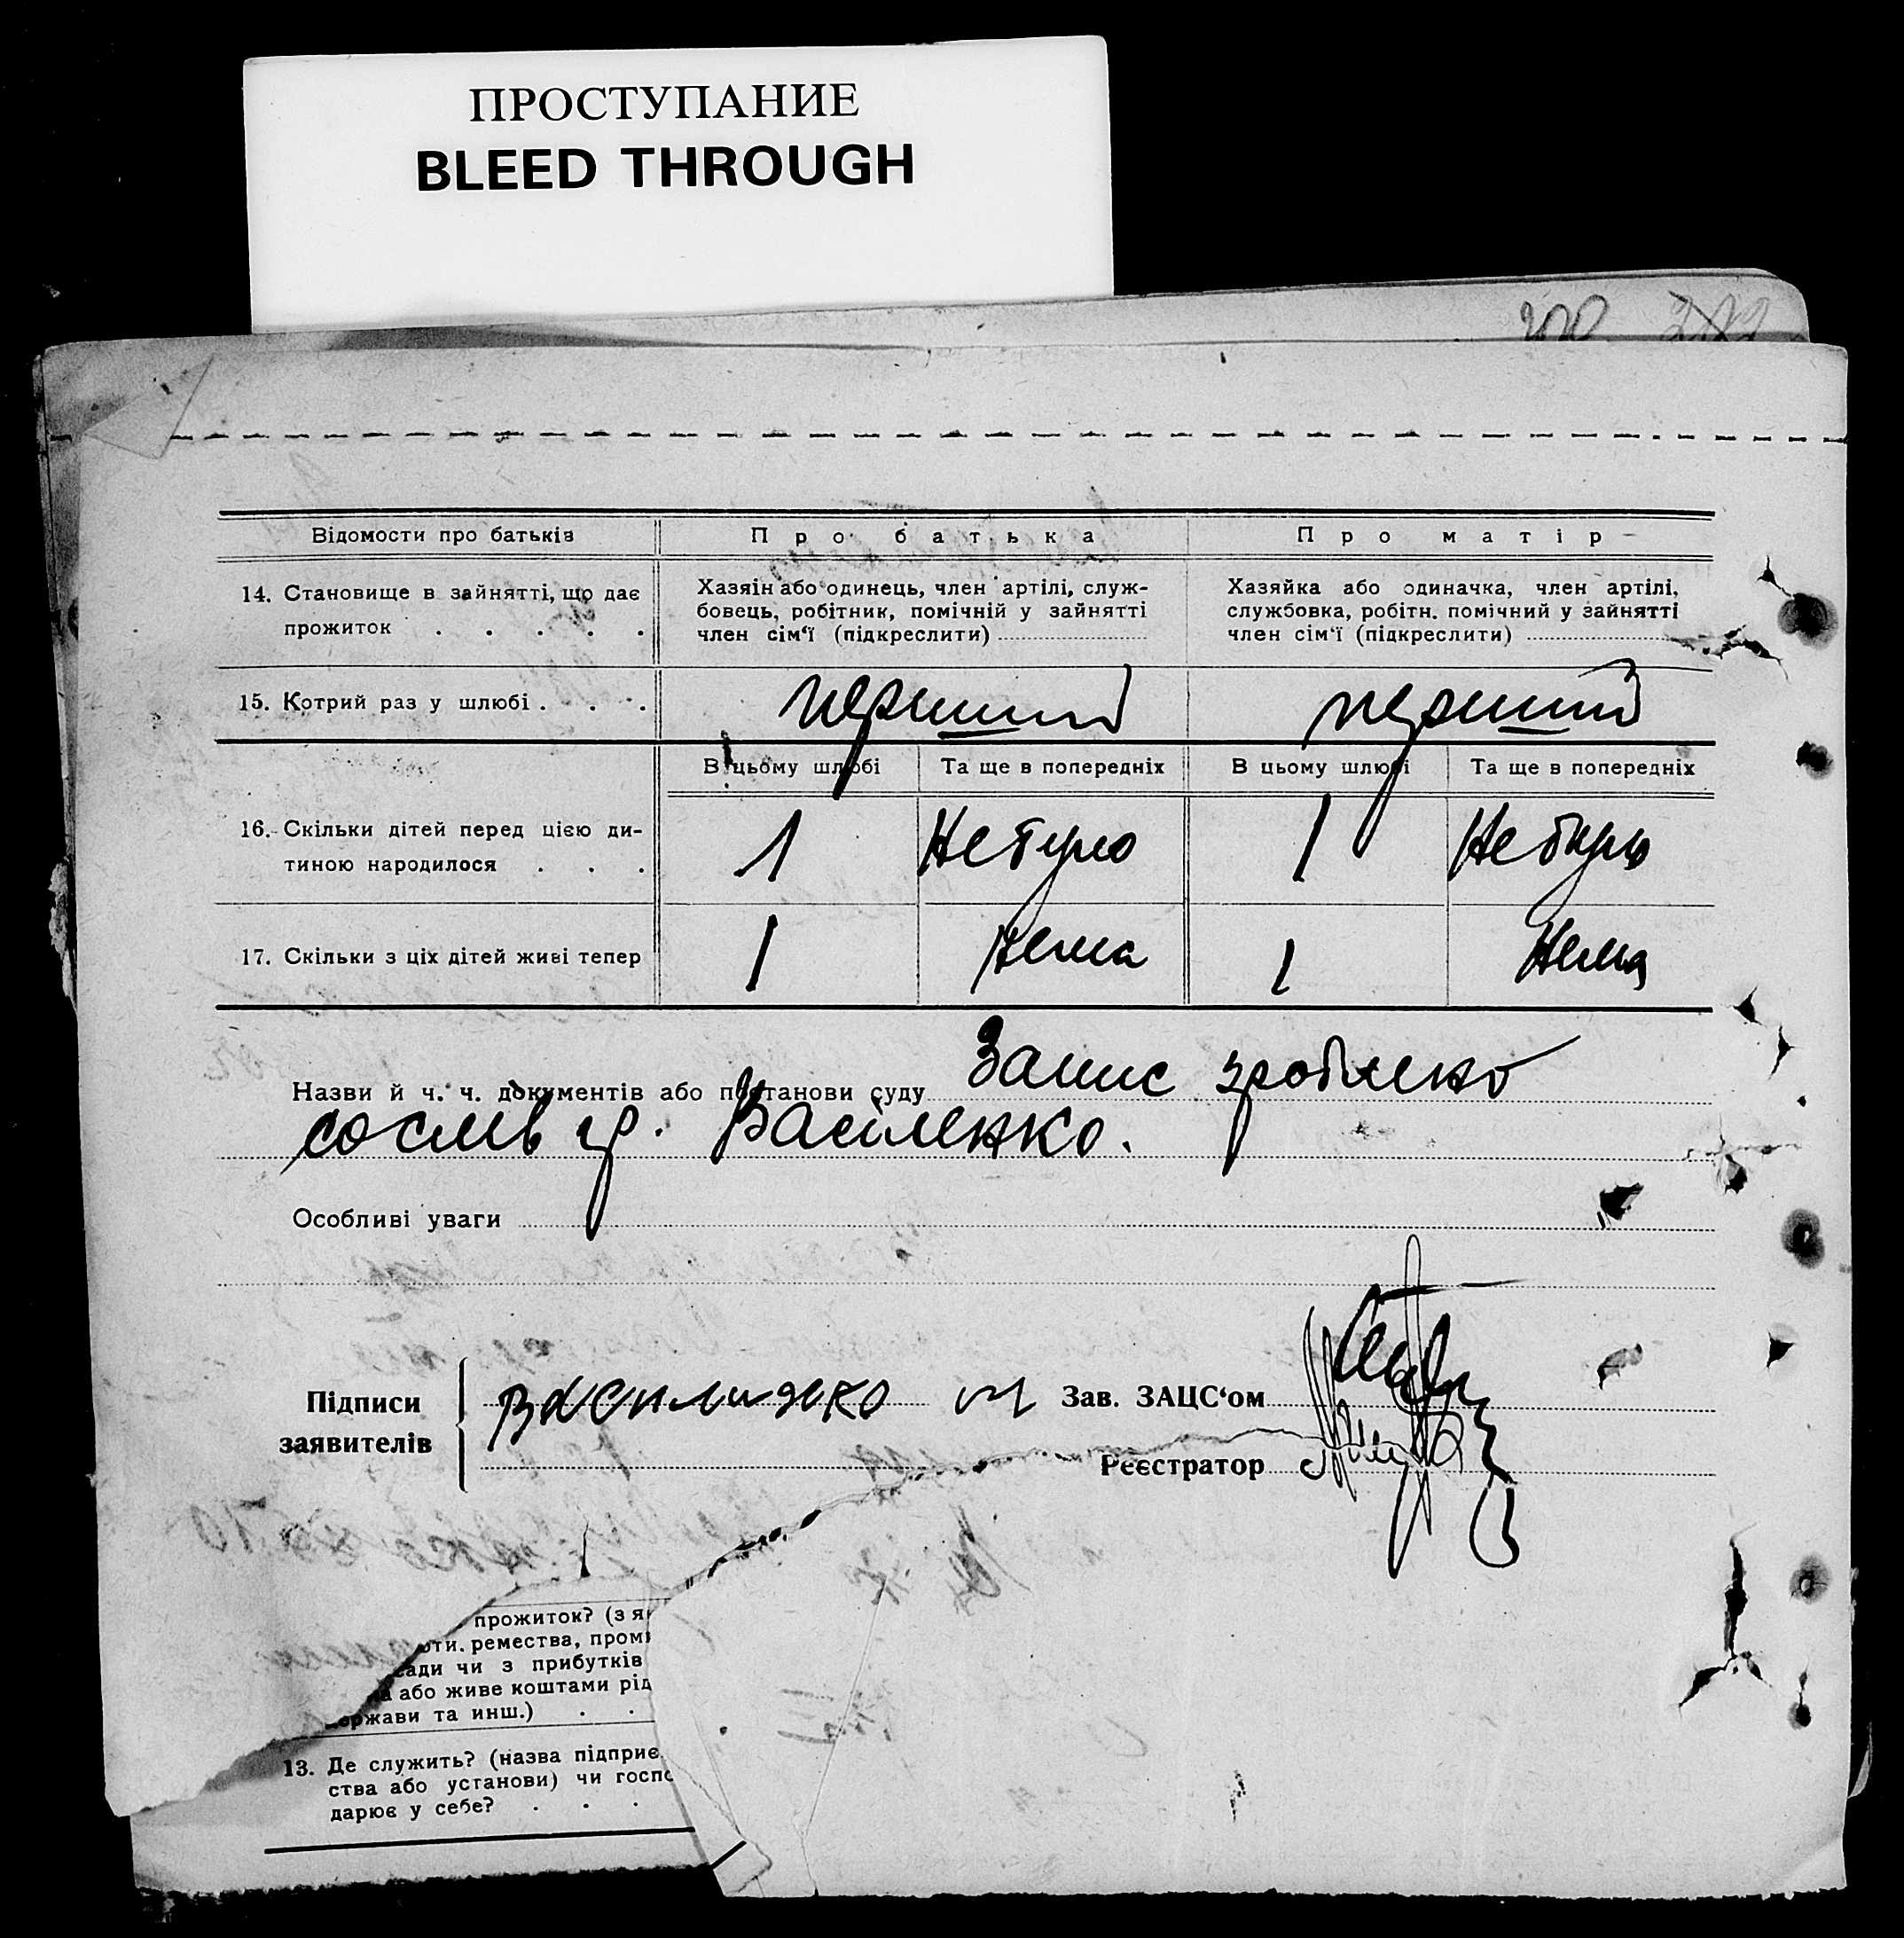 ПРОСТУПАНИЕ
BLEED THROUGH
200 382
Відомости про батьків
Про батька
Про матір
14. Становище в зайнятті, що дає
прожиток . . . . .
Хазяін або одинець, член артілі, служ-
бовець, робітник, помічній у зайнятті
член сім'ї (підкреслити)
Хазяйка або одиначка, член артілі,
службовка, робітн. помічний у зайнятті
член сім'ї (підкреслити)
15. Котрий раз у шлюбі . . .
перший
перший
В цьому шлюбі
Та ще в попередніх
В цьому шлюбі
Та ще в попередніх
16. Скільки дітей перед цією ди-
тиною народилося . . .
1
Не було
1
Не було
17. Скільки з ціх дітей живі тепер
1
Нема
1
Нема
Назви й ч. ч. документів або постанови суду Запис зроблено
гр. Василенко.
Особливі уваги
Підписи
заявителів
Василизко
Зав. ЗАЦС'ом
Реєстратор
прожиток? (з як
оти. ремества, пром
сади чи з прибутків
або живе коштами рід
держави та инш.) . .
13. Де служить? (назва підприє
ства або установи) чи госпо
дарює у себе? . . .